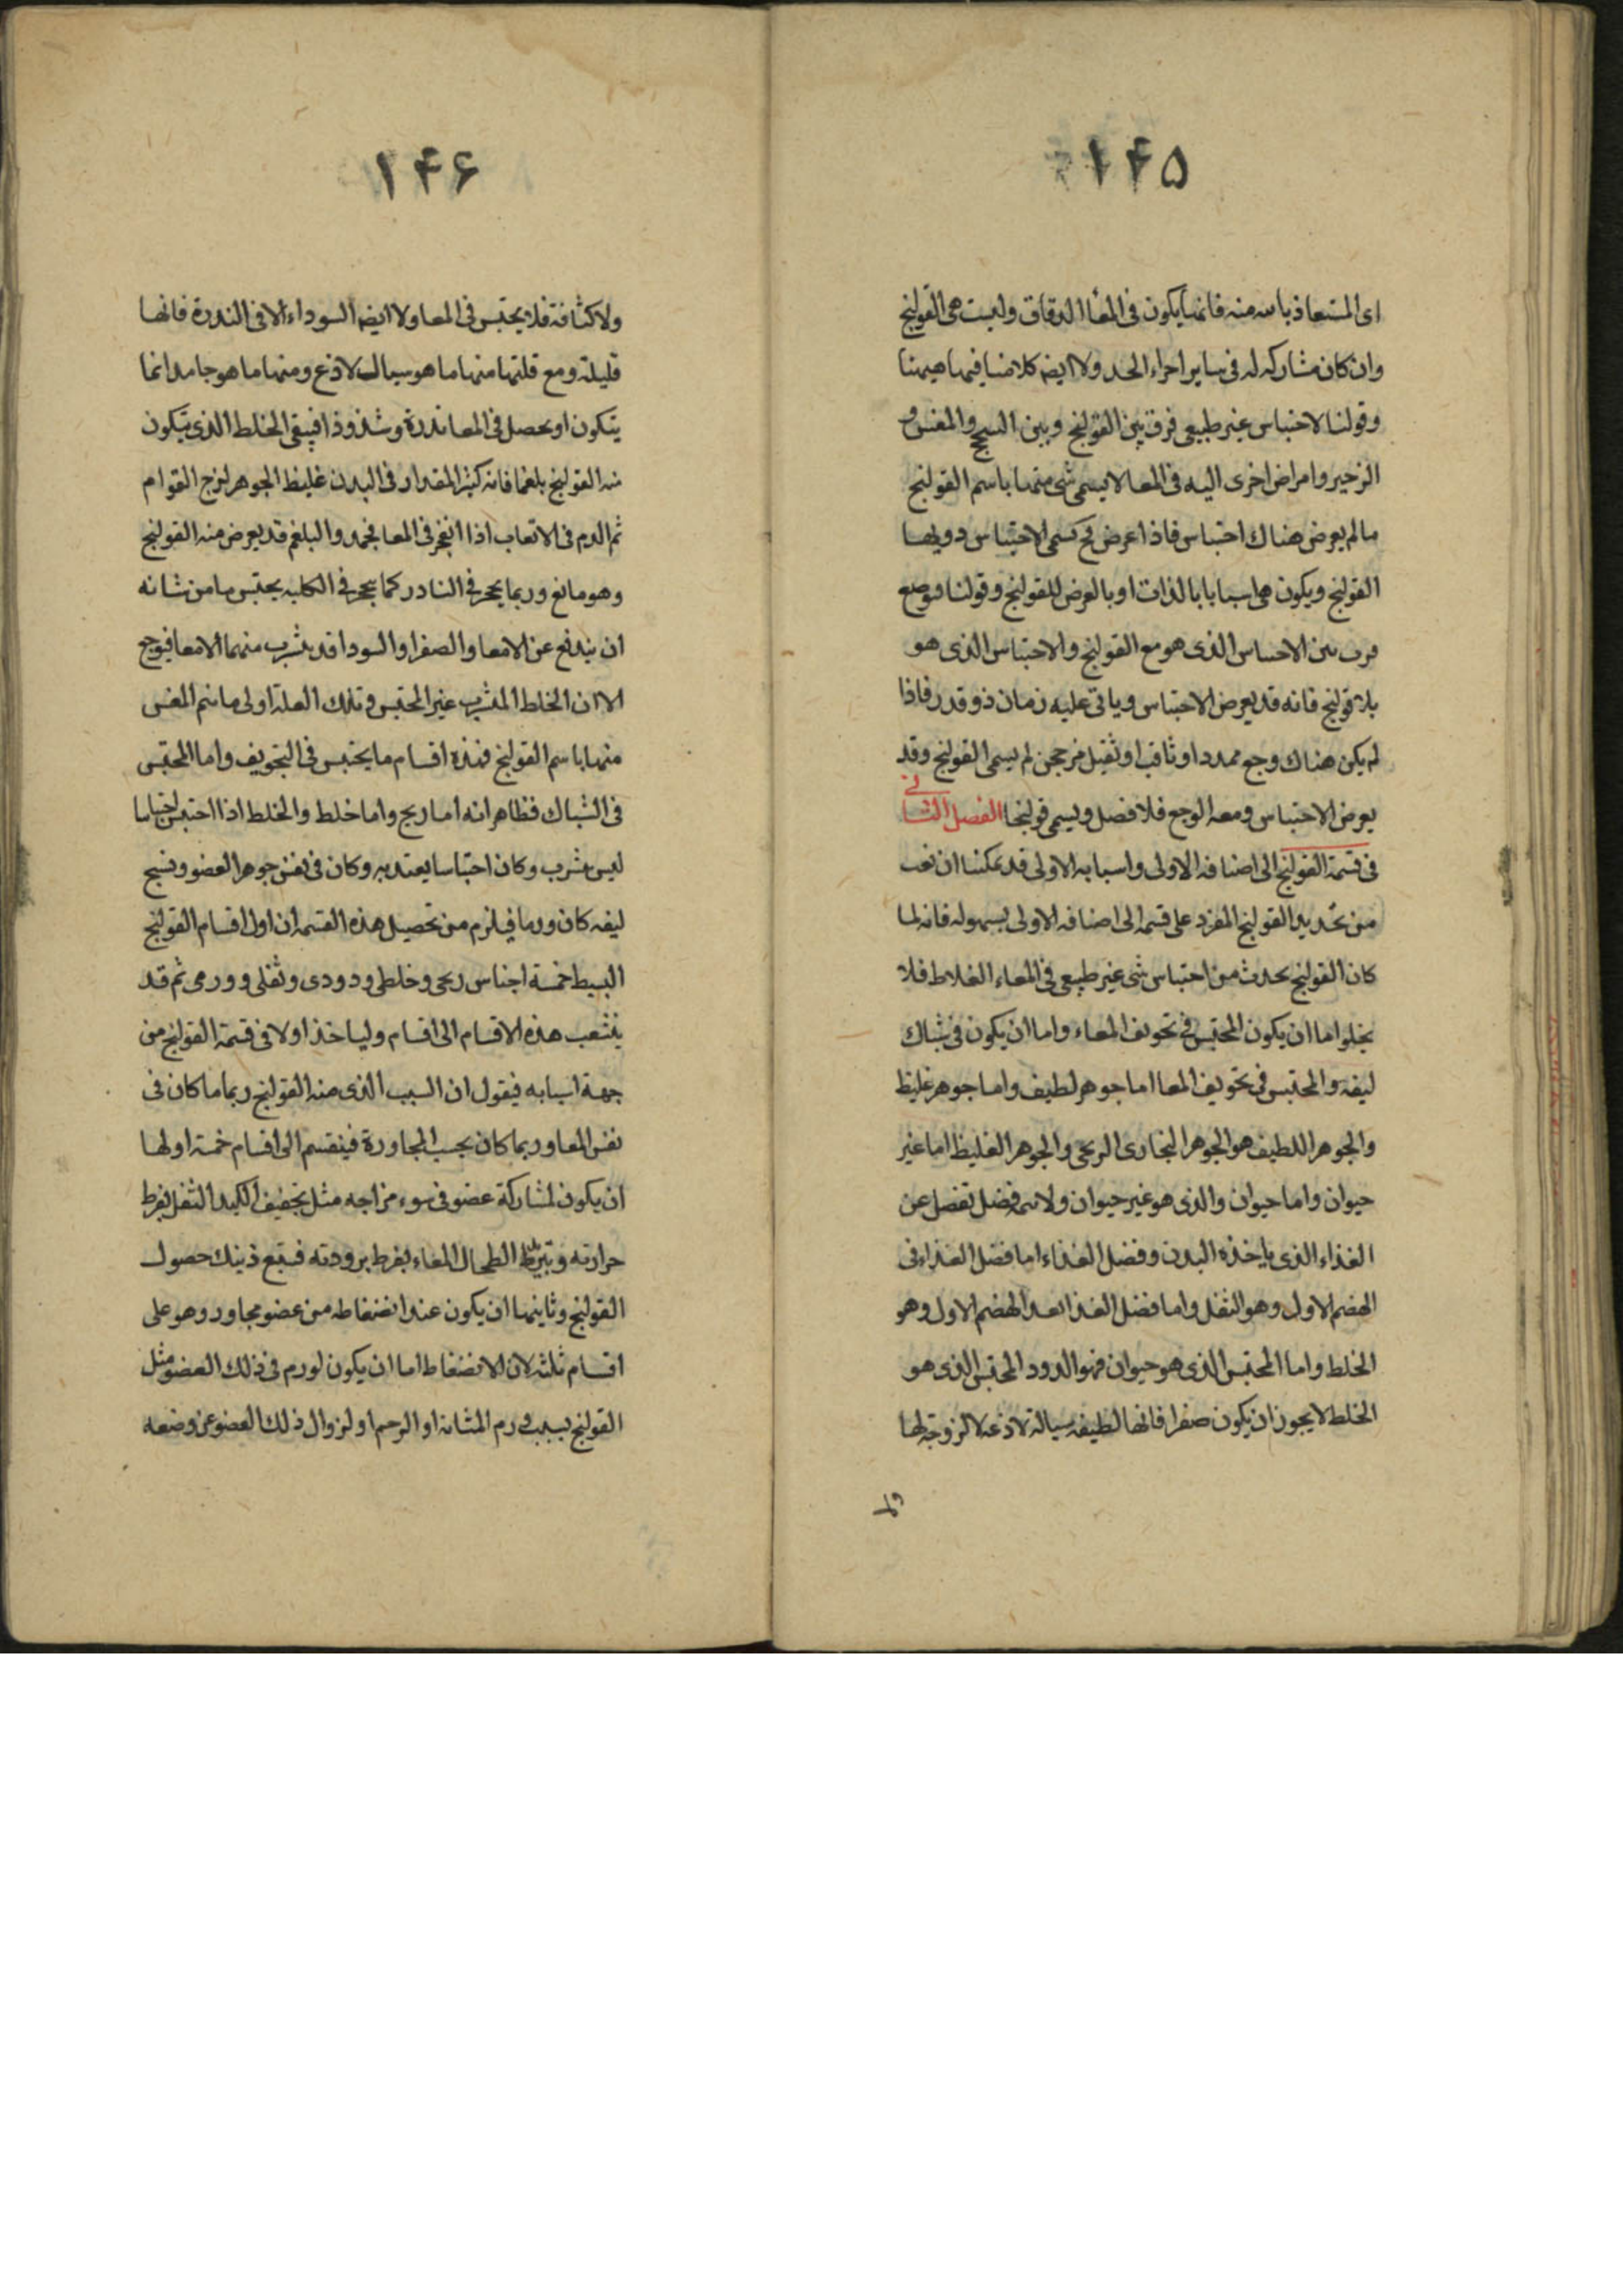 ۱۴۵
اى المستعاذ بالله منه فانما يكون فى المعا الدقاق وليست هى القولنج
وان كان مشاركه له فى ساير اجراء الحد ولا ايضه كلامنا فيها هيهنا
وقولنا لاحتباس غير طبيعى فرق بين القولنج وبين السحج والمغس و
الزحير وامراض اخرى اليه فى المعا لا يسمى شى منها باسم القولنج
مالم يعرض هناك احتباس فاذا عرض ح كسمى الاحتباس دويها
القولنج ويكون هى اسبابا بالذات او بالعرض للقولنج وقولنا فوجع
فرق بين الاحساس الذى هو مع القولنج والاحتباس الذى هو
بلا قولنج فانه قد يعرض الاحتباس وياتى عليه زمان ذو قدر فاذا
لم يكن هناك وجع ممدد او ثاقب او ثقيل مرجحن لم يسمى القولنج وقد
يعرض الاحتباس ومعه الوجع فلا فضل ويسمى قولنجا الفصل الثانى
فى قسمة القولنج الى اصنافه الاولى واسبابه الاولى قد يمكننا ان نعب
من تحديد القولنج المفرد على قسمه الى اصنافه الاولى بسهوله فانه لما
كان القولنج يحدث من احتباس شى غير طبيعى فى المعاء الغلاط فلا
يخلو اما ان يكون المحتبس فى تجويف المعاء واما ان يكون فى شباك
ليفه والمحتبس فى تجويف المعا اما جوهر لطيف واما جوهر غليظ
والجوهر اللطيف هو الجوهر البخارى الريحى والجوهر الغليظ اما غير
حيوان واما حيوان والذى هو غير حيوان ولانه فضل تفصل عن
الغذاء الذى ياخذه البدن وفضل الغذاء اما فضل الغذاء فى
الهضم الاول وهو الثفل واما فضل الغذا بعد الهضم الاول وهو
الخلط واما المحتبس الذى هو حيوان فهو الدود المحتبس الذى هو
الخلط لا يجوز ان يكون صفرا فانها لطيفه سيالة لاذعه لا لزوجة لها
ولا
۱۴۶
ولا كثافة فلا يحتبس فى المعا ولا ايضه السوداء الا فى الندرة فانها
قليلة ومع قلتها منها ما هو سيال لاذع ومنها ما هو جامد انما
يتكون او يحصل فى المعا ندرة وشذوذا فيبقى الخلط الذى يتكون
منه القولنج بلغما فانه كثير المقدار فى البدن غليظ الجوهر لزج القوام
ثم الدم فى الاتعاب اذا انفجر فى المعا فجمد والبلغم قد يعرض منه القولنج
وهو مانع وربما يحجر فى النادر كما يحجر فى الكليه يحتبس ما من شانه
ان يندفع عن الامعا والصفرا والسودا قد يتشرب منهما الامعا فيوجع
الا ان الخلط المتشرب غير المحتبس وتلك العلة اولى ما نسم المغس
منها باسم القولنج فهذه اقسام ما يحتبس فى التجويف واما المحتبس
فى الشباك فظاهر انه اما ريح واما خلط والخلط اذا احتبس احتباسا
ليس بتشرب وكان احتباسا يعتد به وكان فى نفس جوهر العضو ونسج
ليفه كان ورما فيلزم من تحصيل هذه القسمه ان اول اقسام القولنج
البسيط خمسة اجناس ريحى وخلطى ودودى وثفلى وورمى ثم قد
يتشعب هذه الاقسام الى اقسام ولياخذ اولا فى قسمة القولنج من
جهة اسبابه فيقول ان السبب الذى منه القولنج ربما ما كان فى
نفس المعا وربما كان بحسب المجاورة فينقسم الى اقسام خمسة اولها
ان يكون لمشاركة عضو فى سوء مزاجه مثل تجفيف الكبد الثفل بفرط
حرارته وتبريد الطحال المعاء بفرط برودته فيتبع ذينك حصول
القولنج وثانيها ان يكون عند انضغاطه من عضو مجاور وهو على
اقسام ثلثه لان الانضغاط اما ان يكون لورم فى ذلك العضو مثل
القولنج بسبب ورم المثانه او الرحم او لزوال ذلك العضو عن وضعه